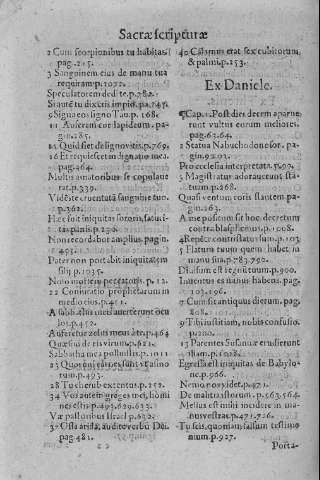 Sacræ scripturæ
2 Cum scorpionibus tu habitas.
pag.215.
3 Sanguinem eius de manu tua
requiram.p.1092.
Speculatorem dedi te.p.782.
Si autē tu dixeris impio.pa.145.
9 Signa eos signo Tau.p.168.
11 Auferam cor lapideum. pa-
gin.285.
15 Quid fiet de ligno vitis.p.769.
16 Et requiescet indignatio mea.
pag.464.
Multis amatoribus
rat.p.339.
Vidēs te cruentatā sanguine tuo.
p.362.
Hæc fuit iniquitas sororis, saturi-
tas panis.p.296.
Non recordabor amplius.pag in.
493.
Pater non portabit iniquitatem
filij.p.1035.
Nolo mortem peccatoris.p.12.
22 Coniuratio prophetarum in
medio eius.p.451.
A sabbatis meis auerterunt ocu
los.p.452.
Auferetur zelus meus à te.p.464
Quæsiui de eis virum.p.621.
Sabbatha mea polluistis.p.1011
rum.p.493.
28 Tu cherub extentus.p.252.
34 Vos autem greges mei, homi
nes estis.p.493.629.633.
Væ pastoribus Israel.p.632.
37 Ossa arida, audite verbū Dei.
pag.481.
40 Calamus erat sex cubitorum,
& palmi.p.253.
Ex Daniele.
¶Cap.1. Post dies decem aparue
runt vultus eorum meliores.
pag.63.64.
2 Statua Nabuchodonosor. pa-
Pro ecclesia interpretata.p.90.
3 Magistratus adorauerunt sta-
tuam.p.268.
Quasi ventum roris flantem.pa-
gin.263.
A me positum est hoc decretum
contra blasphemos.p.1008.
4 Rex
5 Flatum tuum quem habet in
manu sua.p.783.790.
Diuisum est regnum tuum.p.900.
Inuentus es minus habens. pag.
193.496.
7 Cum sit antiquus dierum.pag.
208.
9 Tibi iustitiam, nobis confusio.
p.200.
13 Parentes Susannæ erudierunt
filiam.p.1028.
Egressa est iniquitas de Babylo-
ne.p.966.
Nemo nos videt.p.471.
De
Melius est mihi incidere in ma-
nus vestras.p.471.726.
Tu scis, quoniam falsum testimo
nium.p.927.
Porta-